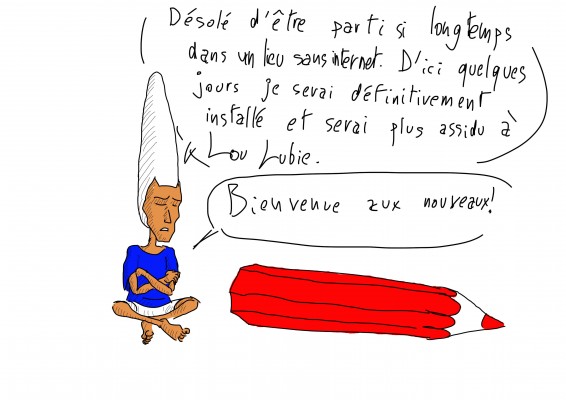 Désolé d'être parti si longtemps
dans un lieu sans internet. D'ici quelques
jours je serai définitivement
installé et serai plus assidu à
Lou Lubie.
Bienvenue aux nouveaux!